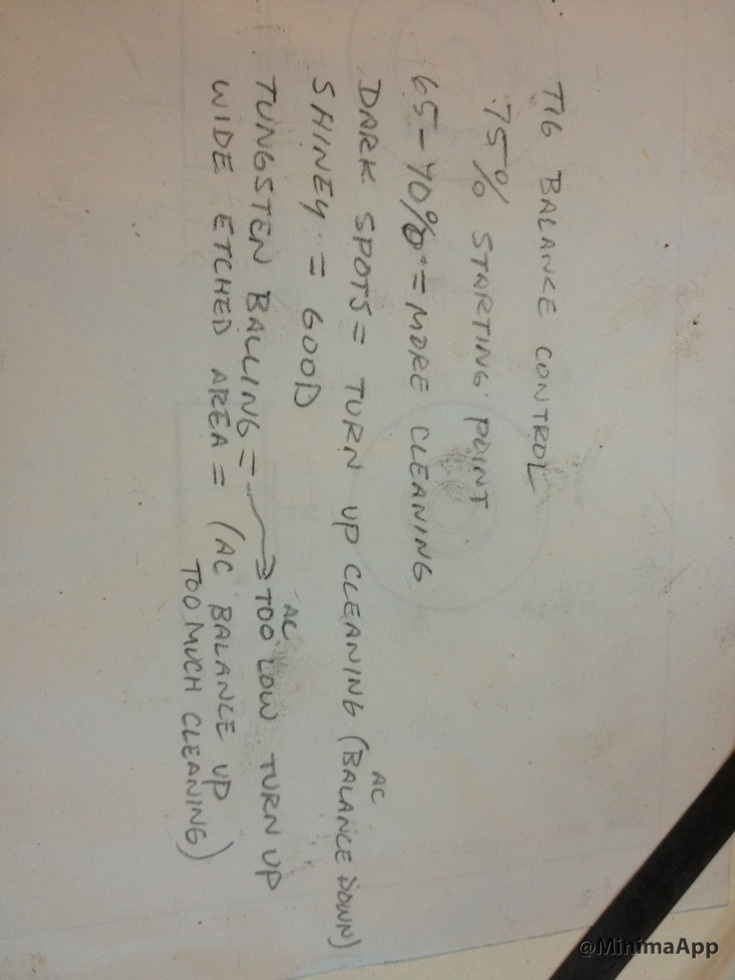 TIG BALANCE CONTROL
75% STARTING POINT
65-70% = MORE CLEANING
DARK SPOTS = TURN UP CLEANING (AC BALANCE DOWN)
SHINEY = GOOD
TUNGSTEN BALLING = → AC TOO LOW TURN UP
WIDE ETCHED AREA = (AC BALANCE UP
TOO MUCH CLEANING)
@MinimaApp